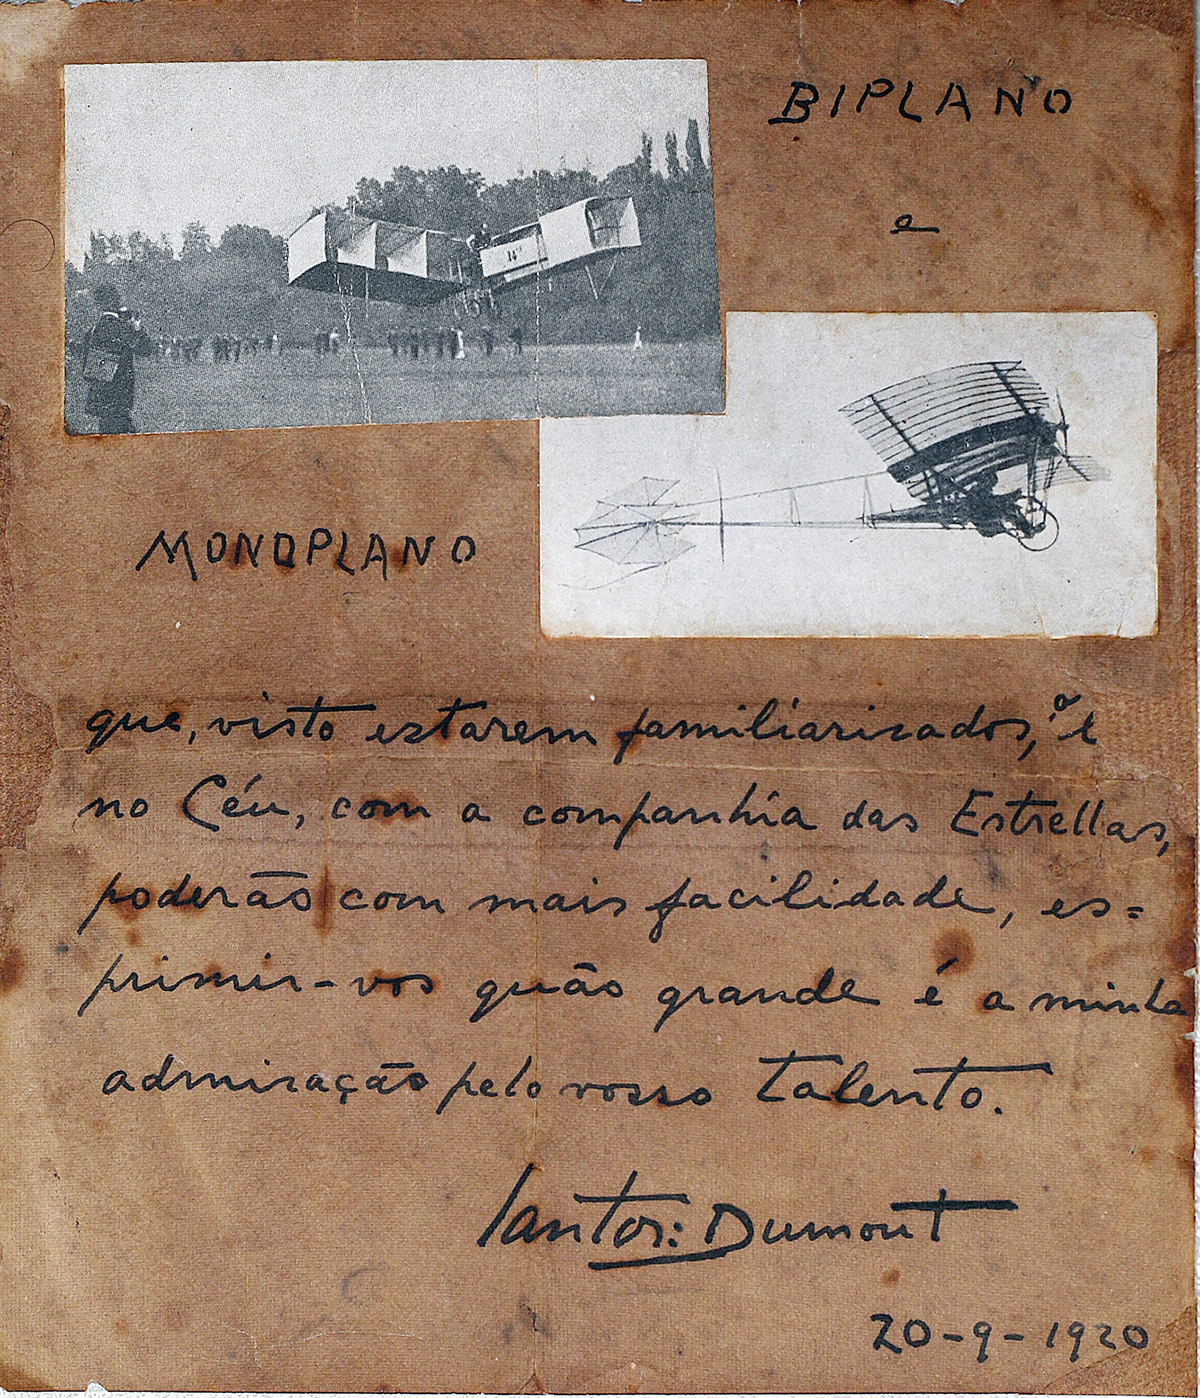 BIPLANO
e
14
MONOPLANO
que, visto estarem familiarisados,
no Céu, com a companhia das Estrellas,
poderão com mais facilidade, es=
primir-vos quão grande é a minha
admiração pelo vosso talento.
Santos=Dumont
20-9-1920